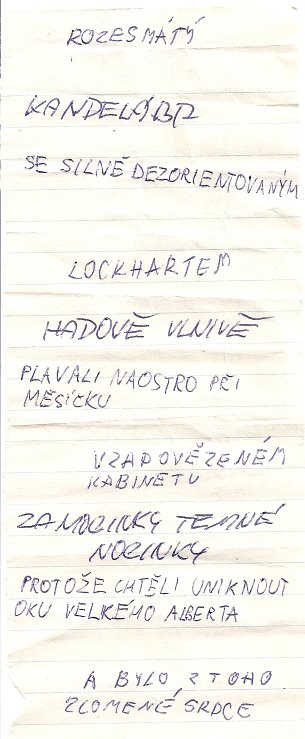 ROZESMÁTÝ
KANDELÁBR
SE SILNĚ DEZORIENTOVANÝM
LOCKHARTEM
HADOVĚ VLNIVĚ
PLAVALI NAOSTRO PŘI
MĚSÍCKU
V ZAPOVĚZENÉM
KABINETU
ZA NOCINKY TEMNÉ
NOCINKY
PROTOŽE CHTĚLI UNIKNOUT
OKU VELKÉHO ALBERTA
A BYLO Z TOHO
ZLOMENÉ SRDCE